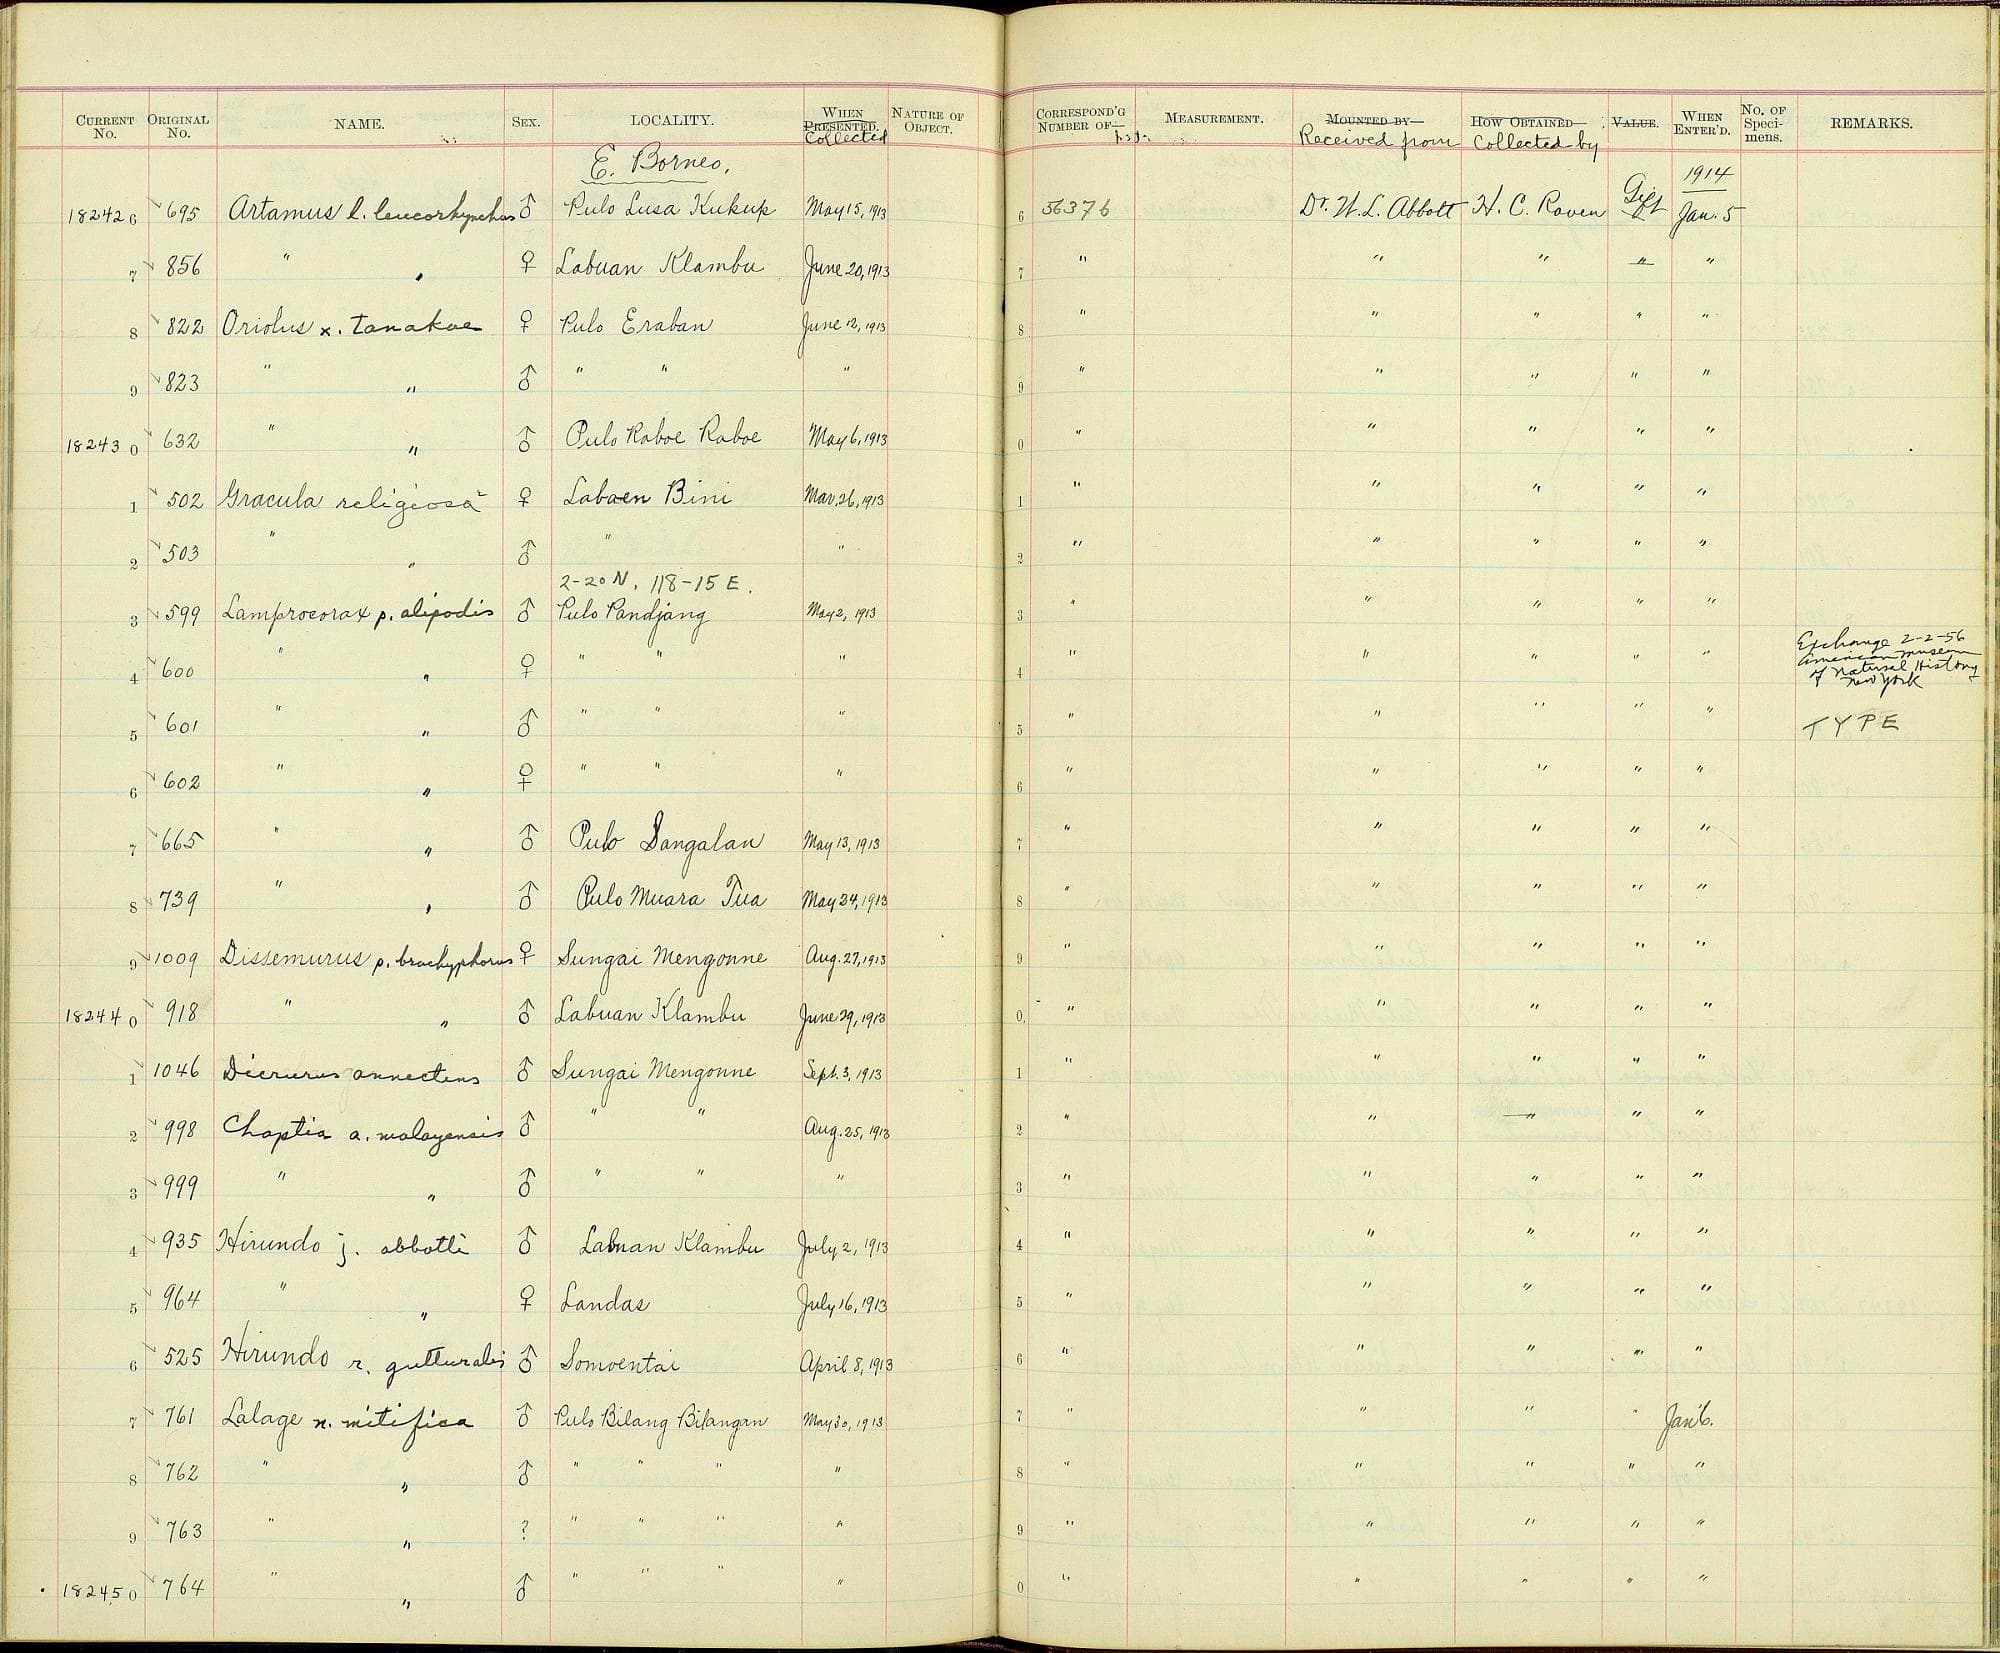 CURRENT No. ORIGINAL No. NAME. SEX. LOCALITY. WHEN PRESENTED. Collected NATURE OF OBJECT. CORRESPOND'G NUMBER OF MEASUREMENT. MOUNTED BY Received from HOW OBTAINED Collected by VALUE. WHEN ENTER'D. No. OF Speci-mens. REMARKS.
E. Borneo. 1914
18242 6 695 Artamus l. leucorhynchus ♂ Pulo Lusa Kukup May 15, 1913 6 56376 Dr. W. L. Abbott H. C. Raven Gift Jan. 5
7 856 " " ♀ Labuan Klambu June 20, 1913 7 " " " " "
8 822 Oriolus x. tanakae ♀ Pulo Eraban June 12, 1913 8 " " " " "
9 823 " " ♂ " " " 9 " " " " "
18243 0 632 " " ♂ Pulo Raboe Raboe May 6, 1913 0 " " " " "
1 502 Gracula religiosa ♀ Labaen Bini Mar. 26, 1913 1 " " " " "
2 503 " " ♂ " " 2 " " " " "
2-20 N. 118-15 E.
3 599 Lamprocorax p. alipodis ♂ Pulo Pandjang May 2, 1913 3 " " " " "
4 600 " " ♀ " " " 4 " " " " " Exchange 2-2-56 American Museum of Natural History New York
5 601 " " ♂ " " " 5 " " " " " TYPE
6 602 " " ♀ " " " 6 " " " " "
7 665 " " ♂ Pulo Sangalan May 13, 1913 7 " " " " "
8 739 " " ♂ Pulo Muara Tua May 24, 1913 8 " " " " "
9 1009 Dissemurus p. brachyphorus ♀ Sungai Mengonne Aug. 27, 1913 9 " " " " "
18244 0 918 " " ♂ Labuan Klambu June 29, 1913 0 " " " " "
1 1046 Dicrurus annectens ♂ Sungai Mengonne Sept. 3, 1913 1 " " " " "
2 998 Chaptia a. malayensis ♂ " " Aug. 25, 1913 2 " " " " "
3 999 " " ♂ " " " 3 " " " " "
4 935 Hirundo j. abbotti ♂ Labuan Klambu July 2, 1913 4 " " " " "
5 964 " " ♀ Landas July 16, 1913 5 " " " " "
6 525 Hirundo r. gutturalis ♂ Somoentai April 8, 1913 6 " " " " "
7 761 Lalage n. mitifica ♂ Pulo Bilang Bilangan May 30, 1913 7 " " " " Jan. 6.
8 762 " " ♂ " " " " 8 " " " " "
9 763 " " ? " " " " 9 " " " " "
18245 0 764 " " ♂ " " " " 0 " " " " "